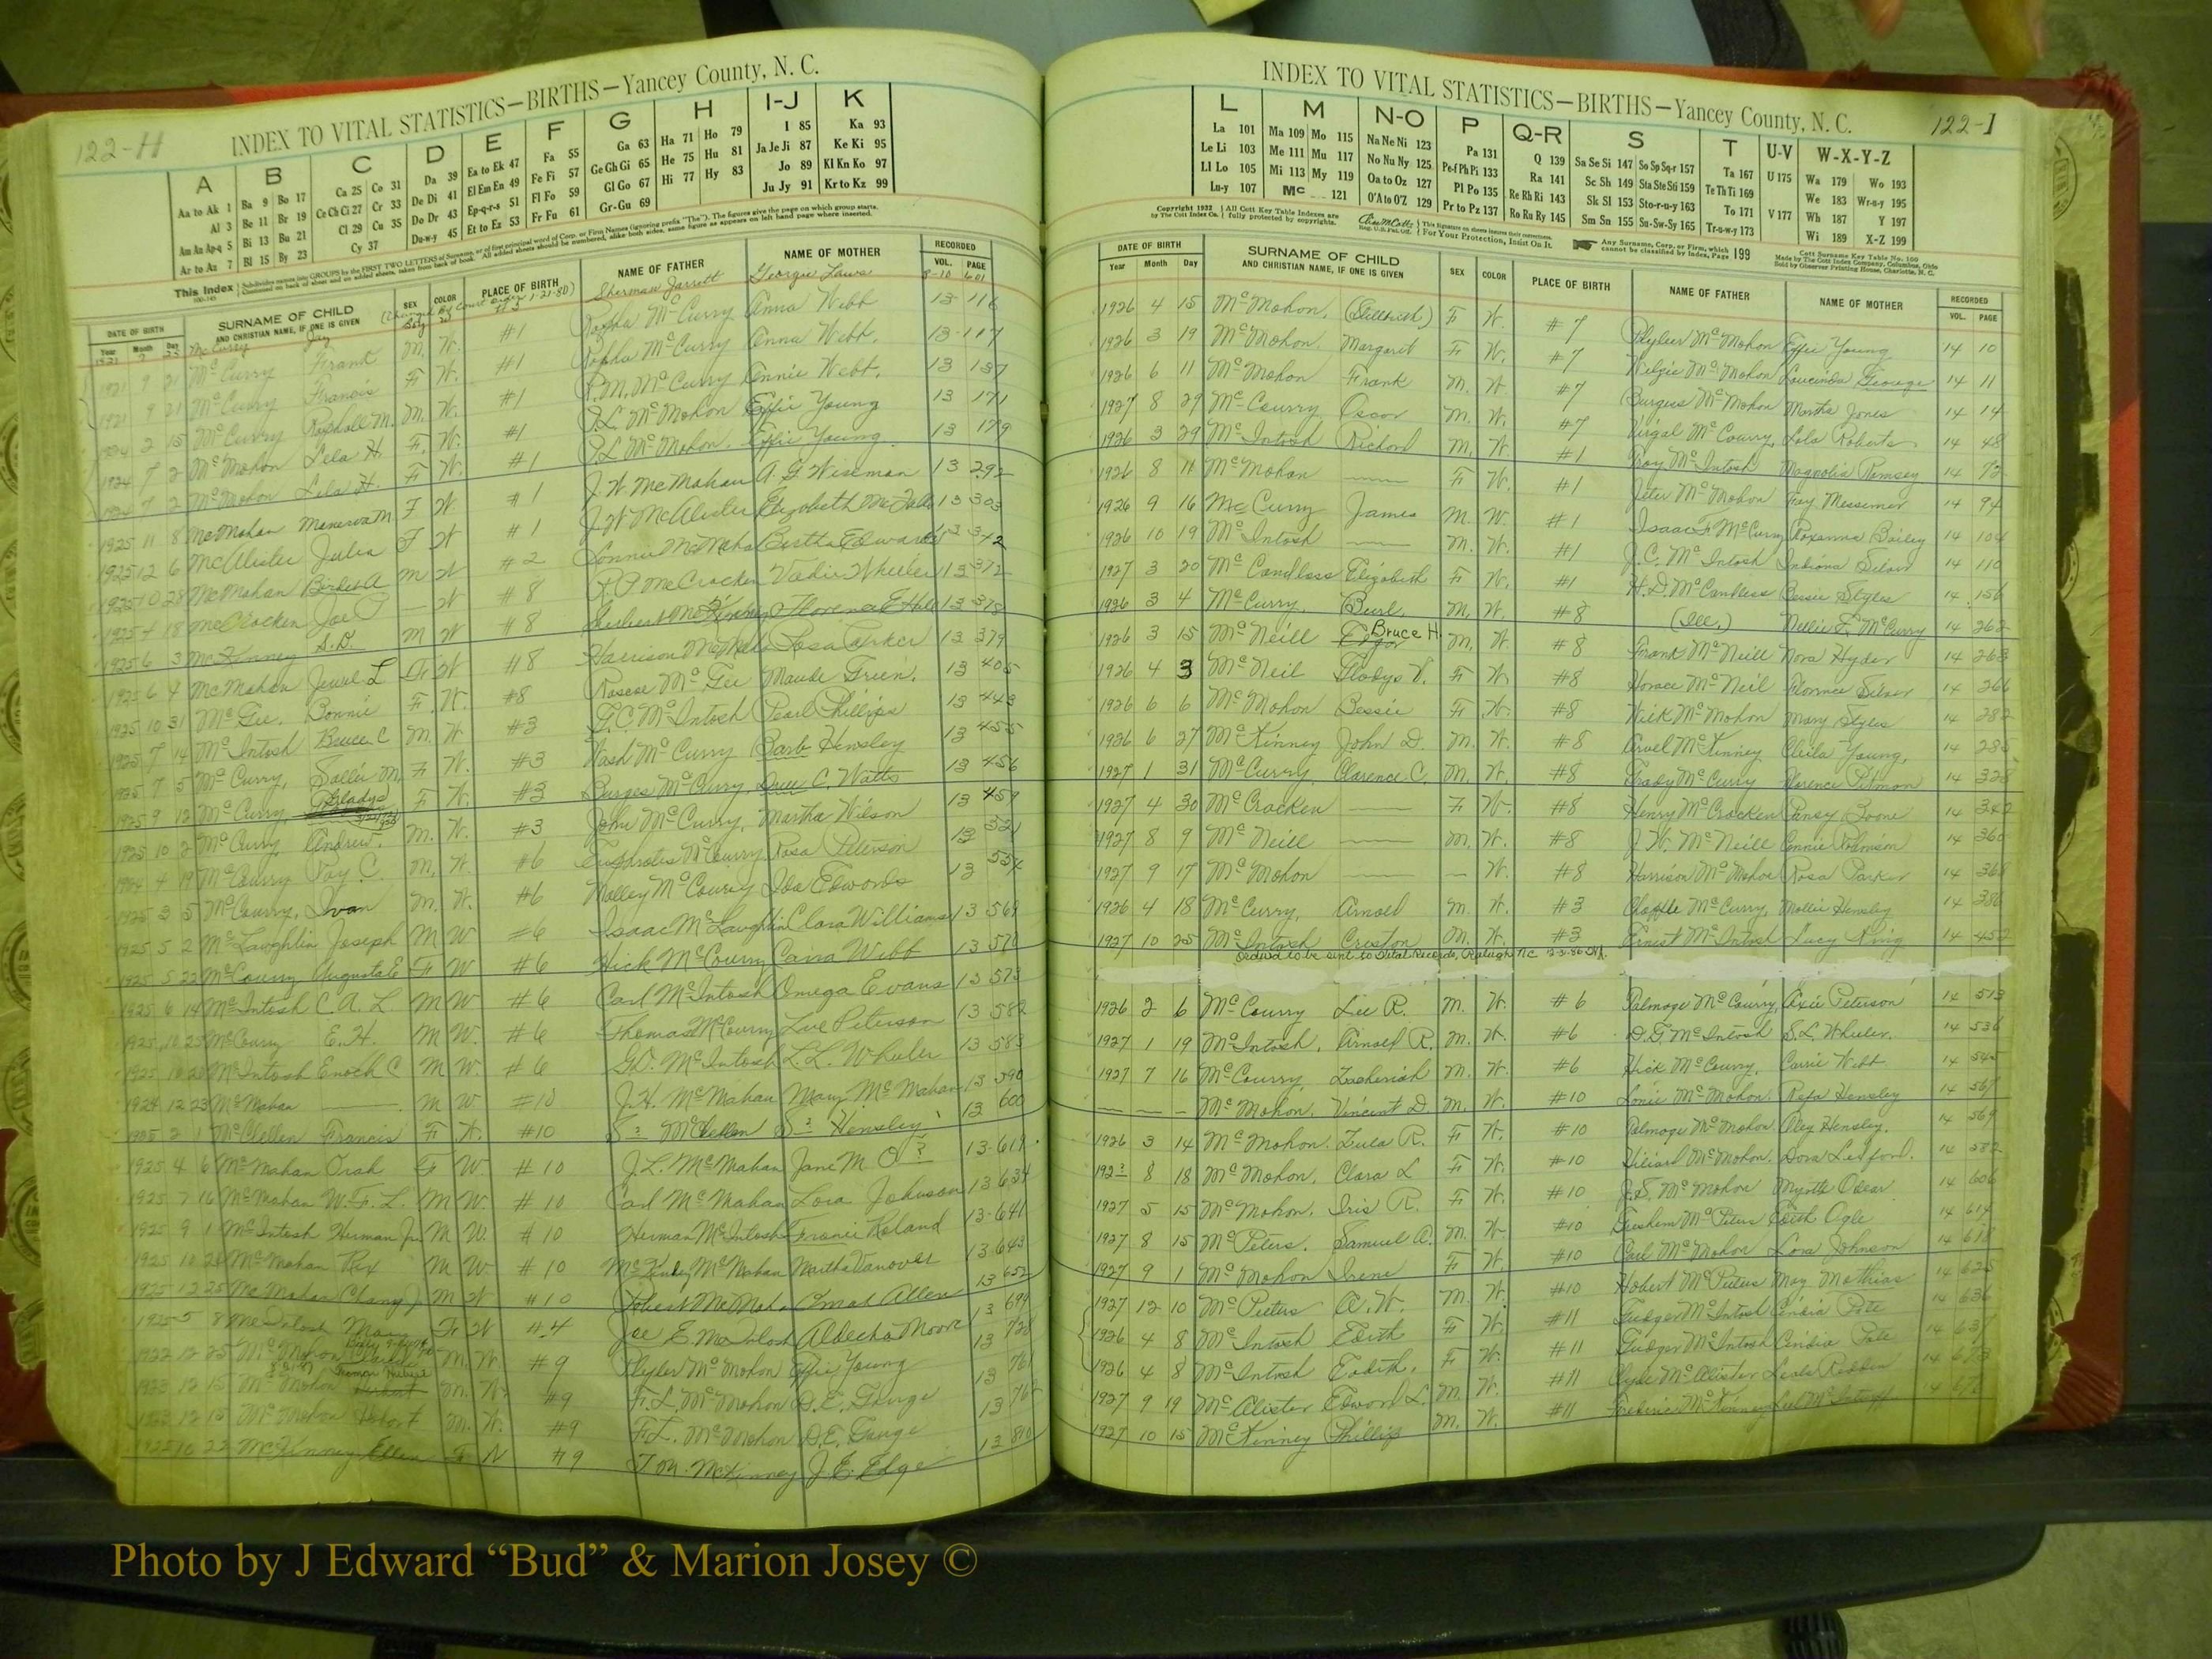 122-H
INDEX TO VITAL STATISTICS—BIRTHS—Yancey County, N. C.
A B C D E F G H I-J K
Aa to Ak 1 Ba 9 Bo 17 Ca 25 Co 31 Da 39 Ea to Ek 47 Fa 55 Ga 63 Ha 71 Ho 79 I 85 Ka 93
Al 3 Be 11 Br 19 Ce Ch Ci 27 Cr 33 De Di 41 El Em En 49 Fe Fi 57 Ge Gh Gi 65 He 75 Hu 81 Ja Je Ji 87 Ke Ki 95
Am An Ap-q 5 Bi 13 Bu 21 Cl 29 Cu 35 Do Dr 43 Ep-q-r-s 51 Fl Fo 59 Gl Go 67 Hi 77 Hy 83 Jo 89 Kl Kn Ko 97
Ar to Az 7 Bl 15 By 23 Cy 37 Du-w-y 45 Et to Ez 53 Fr Fu 61 Gr-Gu 69 Ju Jy 91 Kr to Kz 99
This Index
DATE OF BIRTH SURNAME OF CHILD SEX COLOR PLACE OF BIRTH NAME OF FATHER NAME OF MOTHER RECORDED
Year Month Day AND CHRISTIAN NAME, IF ONE IS GIVEN VOL. PAGE
McCurry Jay Sherman Jarrett Georgie Laws 601
1921 9 21 McCurry Frank M. W. #1 McCurry Anna Webb 13 116
1921 9 21 McCurry Francis F W. #1 McCurry Anna Webb. 13-117
1924 2 15 McCurry M. M. W. #1 McCurry Annie Webb. 13 137
1924 7 2 McMohon Lela H. F. W. #1 McMohon Effie Young 13 171
1924 7 2 McMohon Lila H. F. W. #1 McMohon. Effie Young 13 179
1925 11 8 McMahan F W #1 J. W McMahan A. G Wiseman 13 292
1925 12 6 McAlister Julia F W #1 McAlister Elizabeth 13 303
1925 10 28 McMahan M W #2 Bertha Edwards 13 342
1925 4 18 McCracken Joe P W #8 McCracken Wheeler 13 372
1925 6 3 McKinney S.D. M W #8 Florence E 13 378
1925 6 4 McMahan Jewel L W #8 Harrison Parker 13 379
1925 10 31 McFee. Bonnie F. W. #8 Roscoe McFee Maude Green. 13 405
1925 7 14 McIntosh Bruce C M. W. #3 McIntosh Pearl Phillips 13 443
1925 7 5 McCurry, Sallie M. F W. #3 Wash McCurry Barb Hensley 13 455
1925 9 12 McCurry Gladys F W. #3 Burges McCurry C. Watts 13 456
1925 10 2 McCurry Andrew. M. W. #3 John McCurry, Martha Wilson 13 459
McCourry Roy C. M. W. #6 McCourry Rosa Peterson 13 521
1925 3 5 McCourry, Ivan M. W. #6 McCourry Ida Edwards 13 554
1925 5 2 McLaughlin Joseph M W #6 Isaac McLaughlin Clara Williams 13 569
1925 5 22 McCourry Augusta E F W #6 Hick McCourry Webb 13 570
1925 6 14 McIntosh C. A. L. M W #6 Carl McIntosh Omega Evans 13 573
1925 10 25 McCourry E. H. M W. #6 Thomas McCourry Peterson 13 582
1925 McIntosh Enoch C M W. #6 McIntosh L. L. Wheeler 13 583
1924 12 23 McMahan M W #10 J. H. McMahan Mary McMahan 13 590
1925 2 1 McClellen Francis F W. #10 McClellen Hensley 13 600
1925 4 6 McMahan Orah F W. #10 J. L. McMahan Jane M O? 13-619
1925 7 16 McMahan W. F. L. M W. #10 Carl McMahan Lora Johnson 13 634
1925 9 1 McIntosh Herman Jr. M W. #10 Herman McIntosh Roland 13-641
1925 10 26 McMahan Rex M W #10 McKinley McMahan Martha Vanover 13 643
1925 12 25 McMahan M W #10 Allen 13 652
1925 5 8 McIntosh F W #4 Joe E. McIntosh Moore 13 699
1922 12 25 McMohon M. W. #9 Plyler McMohon Effie Young 13 728
1923 12 15 McMohon M. W. #9 F. L. McMohon D. E. 13 761
1923 12 15 McMohon M. W. #9 F. L. McMohon D. E. 13 762
1925 10 22 McKinney Ellen F N #9 McKinney J. E. Edge 13 810
122-I
INDEX TO VITAL STATISTICS—BIRTHS—Yancey County, N. C.
L M N-O P Q-R S T U-V W-X-Y-Z
La 101 Ma 109 Mo 115 Na Ne Ni 123 Pa 131 Q 139 Sa Se Si 147 So Sp Sq-r 157 Ta 167 U 175 Wa 179 Wo 193
Le Li 103 Me 111 Mu 117 No Nu Ny 125 Pe-f Ph Pi 133 Ra 141 Sc Sh 149 Sta Ste Sti 159 Te Th Ti 169 We 183 Wr-u-y 195
Ll Lo 105 Mi 113 My 119 Oa to Oz 127 Pl Po 135 Re Rh Ri 143 Sk Sl 153 Sto-r-u-y 163 To 171 V 177 Wh 187 Y 197
Lu-y 107 Mc 121 O'A to O'Z 129 Pr to Pz 137 Ro Ru Ry 145 Sm Sn 155 Su-Sw-Sy 165 Tr-u-w-y 173 Wi 189 X-Z 199
Copyright 1932 by The Cott Index Co. All Cott Key Table Indexes are fully protected by copyrights. For Your Protection, Insist On It. Any Surname, Corp. or Firm, which cannot be classified by Index, Page 199
Cott Surname Key Table No. 100 Made by The Cott Index Company, Columbus, Ohio Sold by Observer Printing House, Charlotte, N. C.
DATE OF BIRTH SURNAME OF CHILD SEX COLOR PLACE OF BIRTH NAME OF FATHER NAME OF MOTHER RECORDED
Year Month Day AND CHRISTIAN NAME, IF ONE IS GIVEN VOL. PAGE
1926 4 15 McMohon. F W. #7 Plyler McMohon Effie Young 14 10
1926 3 19 McMohon. Margaret F W. #7 McMohon Loucinda George 14 11
1926 6 11 McMohon Frank M. W. #7 Burgess McMohon Martha Jones 14 14
1927 8 29 McCourry Oscar M. W. #7 Virgal McCourry, Lola Roberts 14 48
1926 3 29 McIntosh Richard M. W. #1 McIntosh Magnolia Ramsey 14 72
1926 8 11 McMohan F W. #1 Jeter McMohon Fay Messemer 14 94
1926 9 16 McCurry James M. W. #1 Isaac F McCurry Roxanna Bailey 14 104
1926 10 19 McIntosh M. W. #1 J. C. McIntosh Indiana Silver 14 110
1927 3 20 McCandless Elizabeth F W. #1 H. D. McCandless Bessie Styles 14 156
1926 3 4 McCurry. Burl. M. W. #8 (Ille.) Nellie F. McCurry 14 262
1926 3 15 McNeill Bruce H. M. W. #8 Frank McNeill Nora Hyder 14 263
1926 4 3 McNeil Gladys V. F W. #8 Horace McNeil Florence Silver 14 266
1926 6 6 McMohon Bessie F W. #8 Nick McMohon Mary Styles 14 282
1926 6 27 McKinney John D. M. W. #8 Arvel McKinney Young, 14 285
1927 1 31 McCurry Clarence C. M. W. #8 Grady McCurry Florence Pitman 14 328
1927 4 30 McCracken F W. #8 Henry McCracken Pansy Boone 14 342
1927 8 9 McNeill M. W. #8 J. W. McNeill Annie Robinson 14 360
1927 9 17 McMohon W. #8 Harrison McMohon Rosa Parker 14 368
1926 4 18 McCurry, Arnold M. W. #3 McCurry, Mollie Hensley 14 386
1927 10 25 McIntosh Creston M. W. #3 Ernest McIntosh Lucy King 14 452
Ordered to be sent to Vital Records, Raleigh, NC
1926 2 6 McCourry Lee R. M. W. #6 Palmage McCourry, Axie Peterson 14 513
1927 1 19 McIntosh. Arnold R. M. W. #6 D. F. McIntosh S. L. Wheeler. 14 536
1927 7 16 McCourry, Zacheriah M. W. #6 Hick McCourry. Carrie Webb 14 545
McMohon. Vincent D. M. W. #10 Lonie McMohon. Refa Hensley 14 567
1926 3 14 McMohon. Zula R. F W. #10 Palmage McMohon Hensley. 14 569
192? 8 18 McMohon. Clara L F W. #10 Hiliard McMohon. Dora Ledford. 14 582
1927 5 15 McMohon. Iris R. F W. #10 J. S. McMohon 14 606
1927 8 15 McPeters. Samuel A. M. W. #10 McPeters Edith Ogle 14 614
1927 9 1 McMohon Irene F W. #10 Carl McMohon Lora Johnson 14 618
1927 12 10 McPeters A. W. M. W. #10 Hobert McPeters May Mathias 14 625
1926 4 8 McIntosh Edith F W. #11 Gudger McIntosh Pate 14 636
1926 4 8 McIntosh Eadith. F W. #11 Gudger McIntosh Pate 14 637
1927 9 19 McAlister Edward L. M. W. #11 Clyde McAlister 14 673
1927 10 15 McKinney Phillip M. W. #11 McKinney McIntosh 14
Photo by J Edward “Bud” & Marion Josey ©